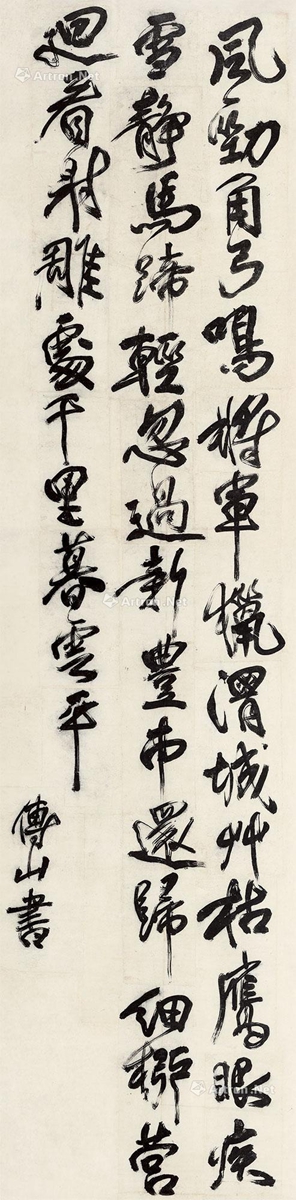 風勁角弓鳴將軍獵渭城艸枯鷹眼疾
雪靜馬蹄輕忽過新豐市還歸細柳營
迴看射雕處千里暮雲平
傅山書
Artron.Net
Artron.Net
Artron.Net
Artron.Net